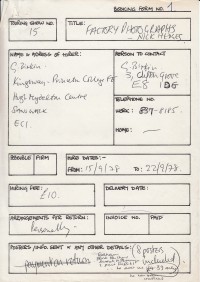 BOOKING FORM NO. 1.
TOURING SHOW NO.
15
TITLE:
FACTORY PHOTOGRAPHS
- NICK HEDGES
NAME & ADDRESS OF HIRER:
Kingsway Princeton College FE
Hugh Myddelton Centre
Sans Walk
EC1
PERSON TO CONTACT
E8
TELEPHONE NO.
WORK: 837-8185
HOME: —
POSSIBLE FIRM
HIRE DATES:—
FROM: 15/9/78 TO: 22/9/78.
HIRING FEE:
£10.
DELIVERY DATE:
ARRANGEMENTS FOR RETURN:
Personally
INVOICE NO. PAID
POSTERS/INFO. SENT & ANY OTHER DETAILS:
8 posters
included